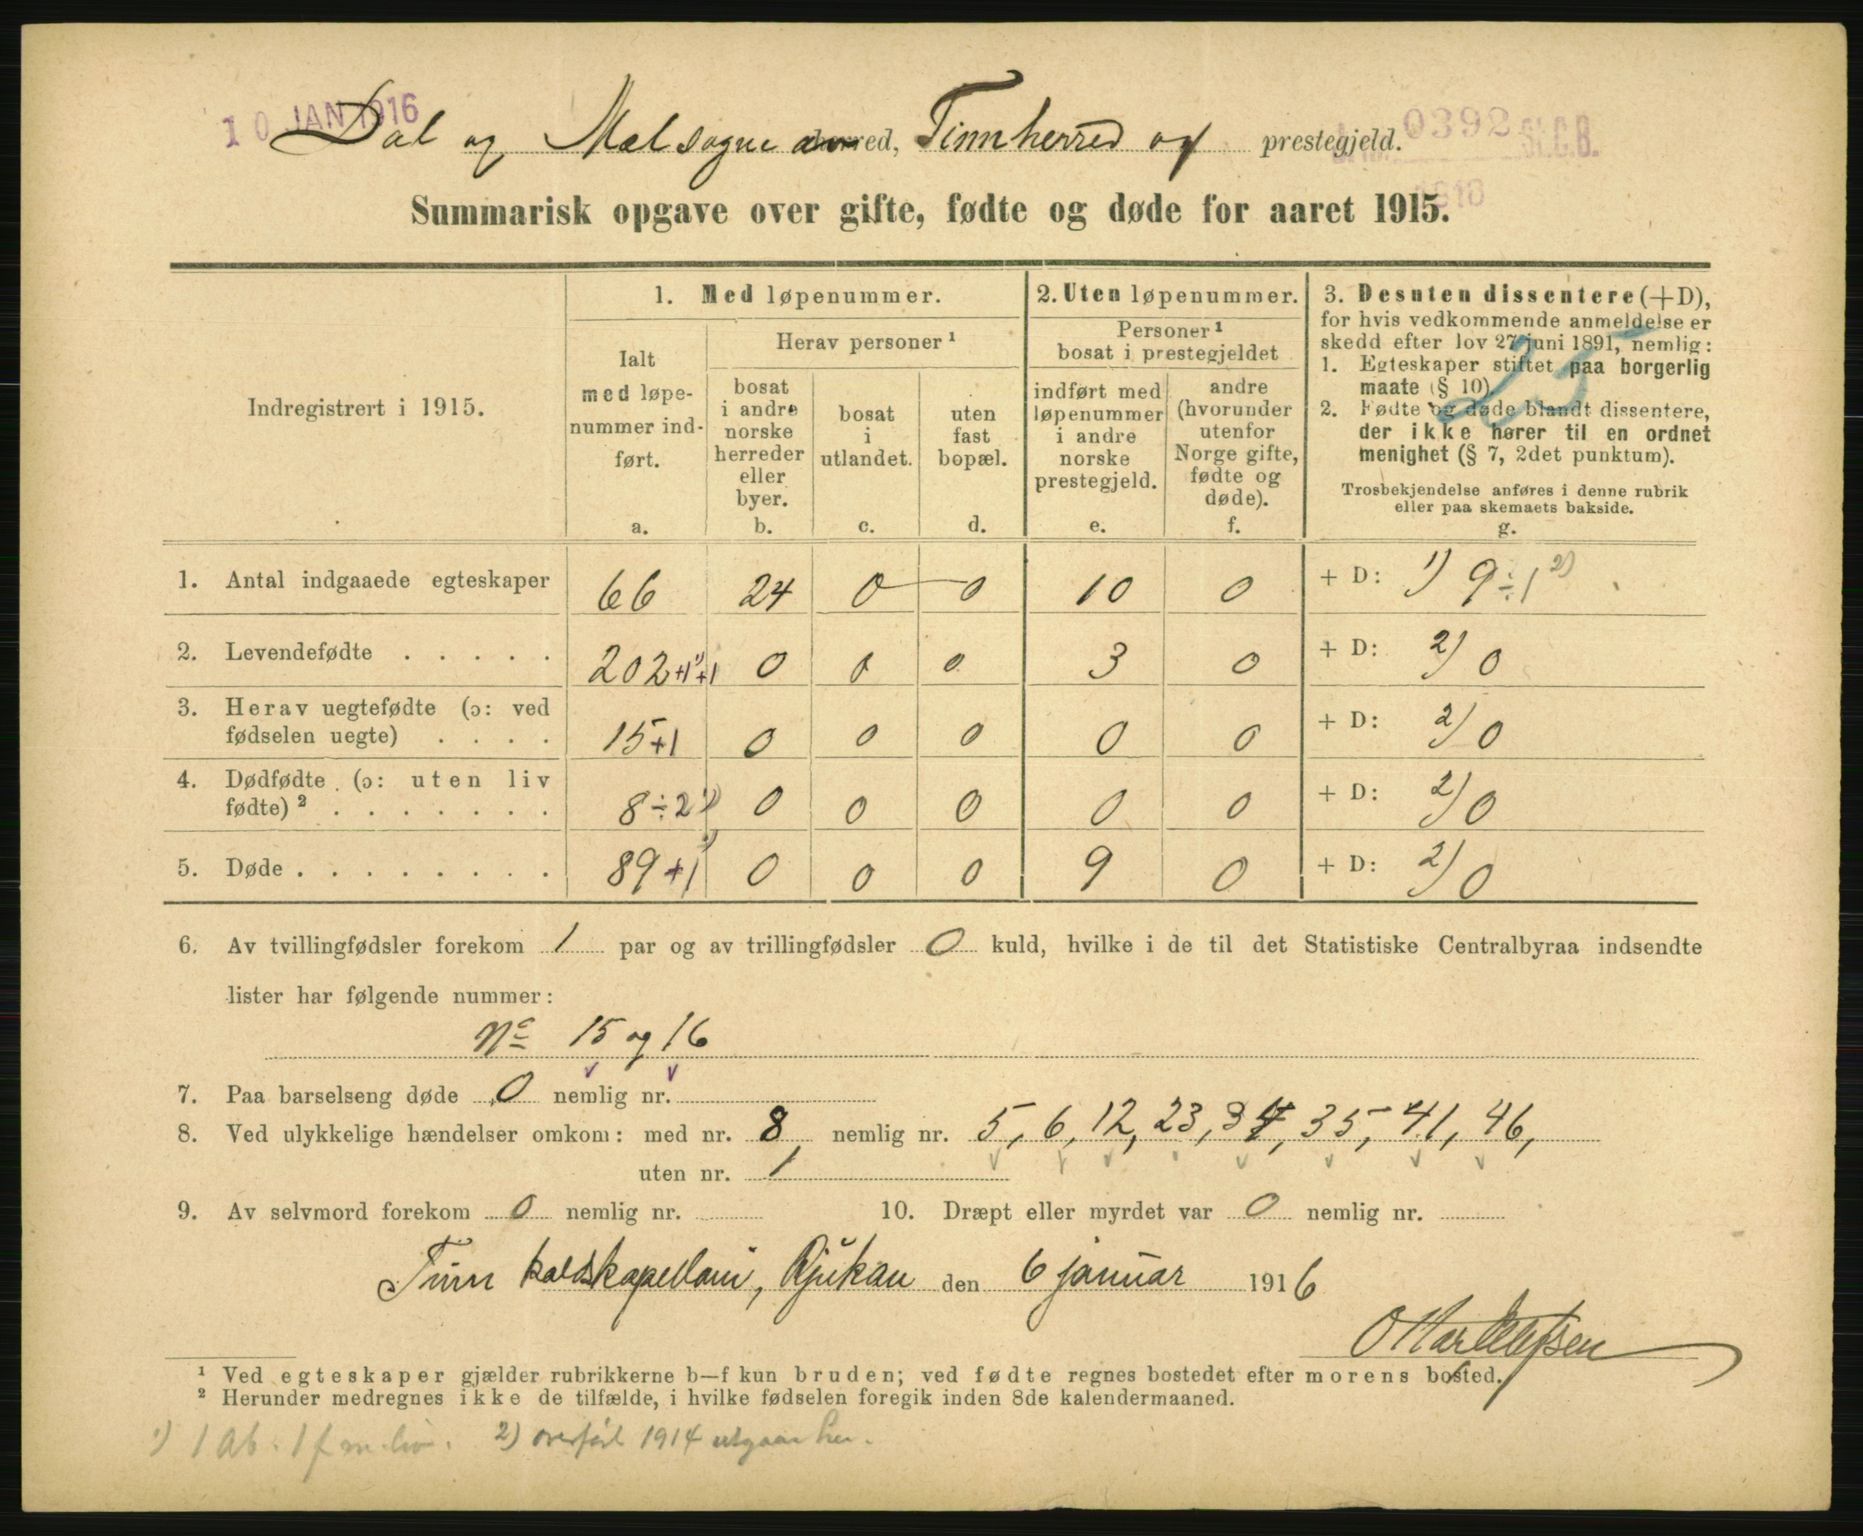 10 JAN 1916
0392 St.C.B.
Dal og Mælsogne herred, Tinnherred og prestegjeld.
Summarisk opgave over gifte, fødte og døde for aaret 1915.
Indregistrert i 1915.
1. Med løpenummer.
Ialt
med løpe-
nummer ind-
ført.
a.
Herav personer ¹
bosat
i andre
norske
herreder
eller
byer.
b.
bosat
i
utlandet.
c.
uten
fast
bopæl.
d.
2. Uten løpenummer.
Personer ¹
bosat i prestegjeldet
indført med
løpenummer
i andre
norske
prestegjeld.
e.
andre
(hvorunder
utenfor
Norge gifte,
fødte og
døde).
f.
3. Desuten dissentere (+D),
for hvis vedkommende anmeldelse er
skedd efter lov 27 juni 1891, nemlig:
1. Egteskaper stiftet paa borgerlig
maate (§ 10)
2. Fødte og døde blandt dissentere,
der ikke hører til en ordnet
menighet (§ 7, 2det punktum).
Trosbekjendelse anføres i denne rubrik
eller paa skemaets bakside.
g.
25
1. Antal indgaaede egteskaper 66 24 0 0 10 0 + D: 1) 9÷1 2)
2. Levendefødte . . . . . 202+1 1)+1 0 0 0 3 0 + D: 2) 0
3. Herav uegtefødte (ɔ: ved
fødselen uegte) . . . . 15+1 0 0 0 0 0 + D: 2) 0
4. Dødfødte (ɔ: uten liv
fødte) ² . . . . . . . 8÷2 1) 0 0 0 0 0 + D: 2) 0
5. Døde . . . . . . . . 89+1 1) 0 0 0 9 0 + D: 2) 0
6. Av tvillingfødsler forekom 1 par og av trillingfødsler 0 kuld, hvilke i de til det Statistiske Centralbyraa indsendte
lister har følgende nummer:
No 15 og 16
7. Paa barselseng døde 0 nemlig nr.
8. Ved ulykkelige hændelser omkom: med nr. 8 nemlig nr. 5, 6, 12, 23, 34, 35, 41, 46,
uten nr. 1
9. Av selvmord forekom 0 nemlig nr. 10. Dræpt eller myrdet var 0 nemlig nr.
Tinn kaldskapellani, Rjukan den 6 januar 1916
¹ Ved egteskaper gjælder rubrikkerne b—f kun bruden; ved fødte regnes bostedet efter morens bosted.
² Herunder medregnes ikke de tilfælde, i hvilke fødselen foregik inden 8de kalendermaaned.
1) 1 Ab. 1 f m. liv. 2) overført 1914 utgaar her.